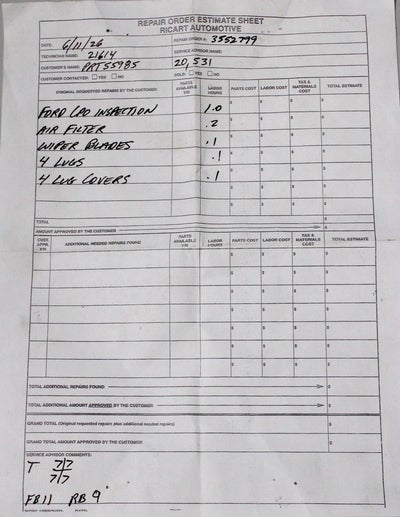 REPAIR ORDER ESTIMATE SHEET
RICART AUTOMOTIVE
DATE: 6/11/26 REPAIR ORDER #: 3552779
TECHNICIAN NAME: 21614 SERVICE ADVISOR NAME:
CUSTOMER'S NAME: PRT55985 20,531
CUSTOMER CONTACTED: ☐ YES ☐ NO SOLD: ☐ YES ☐ NO
ORIGINAL REQUESTED REPAIRS BY THE CUSTOMER PARTS AVAILABLE Y/N LABOR HOURS PARTS COST LABOR COST TAX & MATERIALS COST TOTAL ESTIMATE
FORD CPO INSPECTION 1.0 $ $ $ $
AIR FILTER .2 $ $ $ $
WIPER BLADES .1 $ $ $ $
4 LUGS .1 $ $ $ $
4 LUG COVERS .1 $ $ $ $
$ $ $ $
TOTAL $
AMOUNT APPROVED BY THE CUSTOMER $
CUST. APPR. Y/N ADDITIONAL NEEDED REPAIRS FOUND PARTS AVAILABLE Y/N LABOR HOURS PARTS COST LABOR COST TAX & MATERIALS COST TOTAL ESTIMATE
$ $ $ $
$ $ $ $
$ $ $ $
$ $ $ $
$ $ $ $
$ $ $ $
$ $ $ $
TOTAL ADDITIONAL REPAIRS FOUND $
TOTAL ADDITIONAL AMOUNT APPROVED BY THE CUSTOMER $
GRAND TOTAL (Original requested repairs plus additional needed repairs) $
GRAND TOTAL AMOUNT APPROVED BY THE CUSTOMER $
SERVICE ADVISOR COMMENTS:
T 7/7
7/7
FB11 RB9